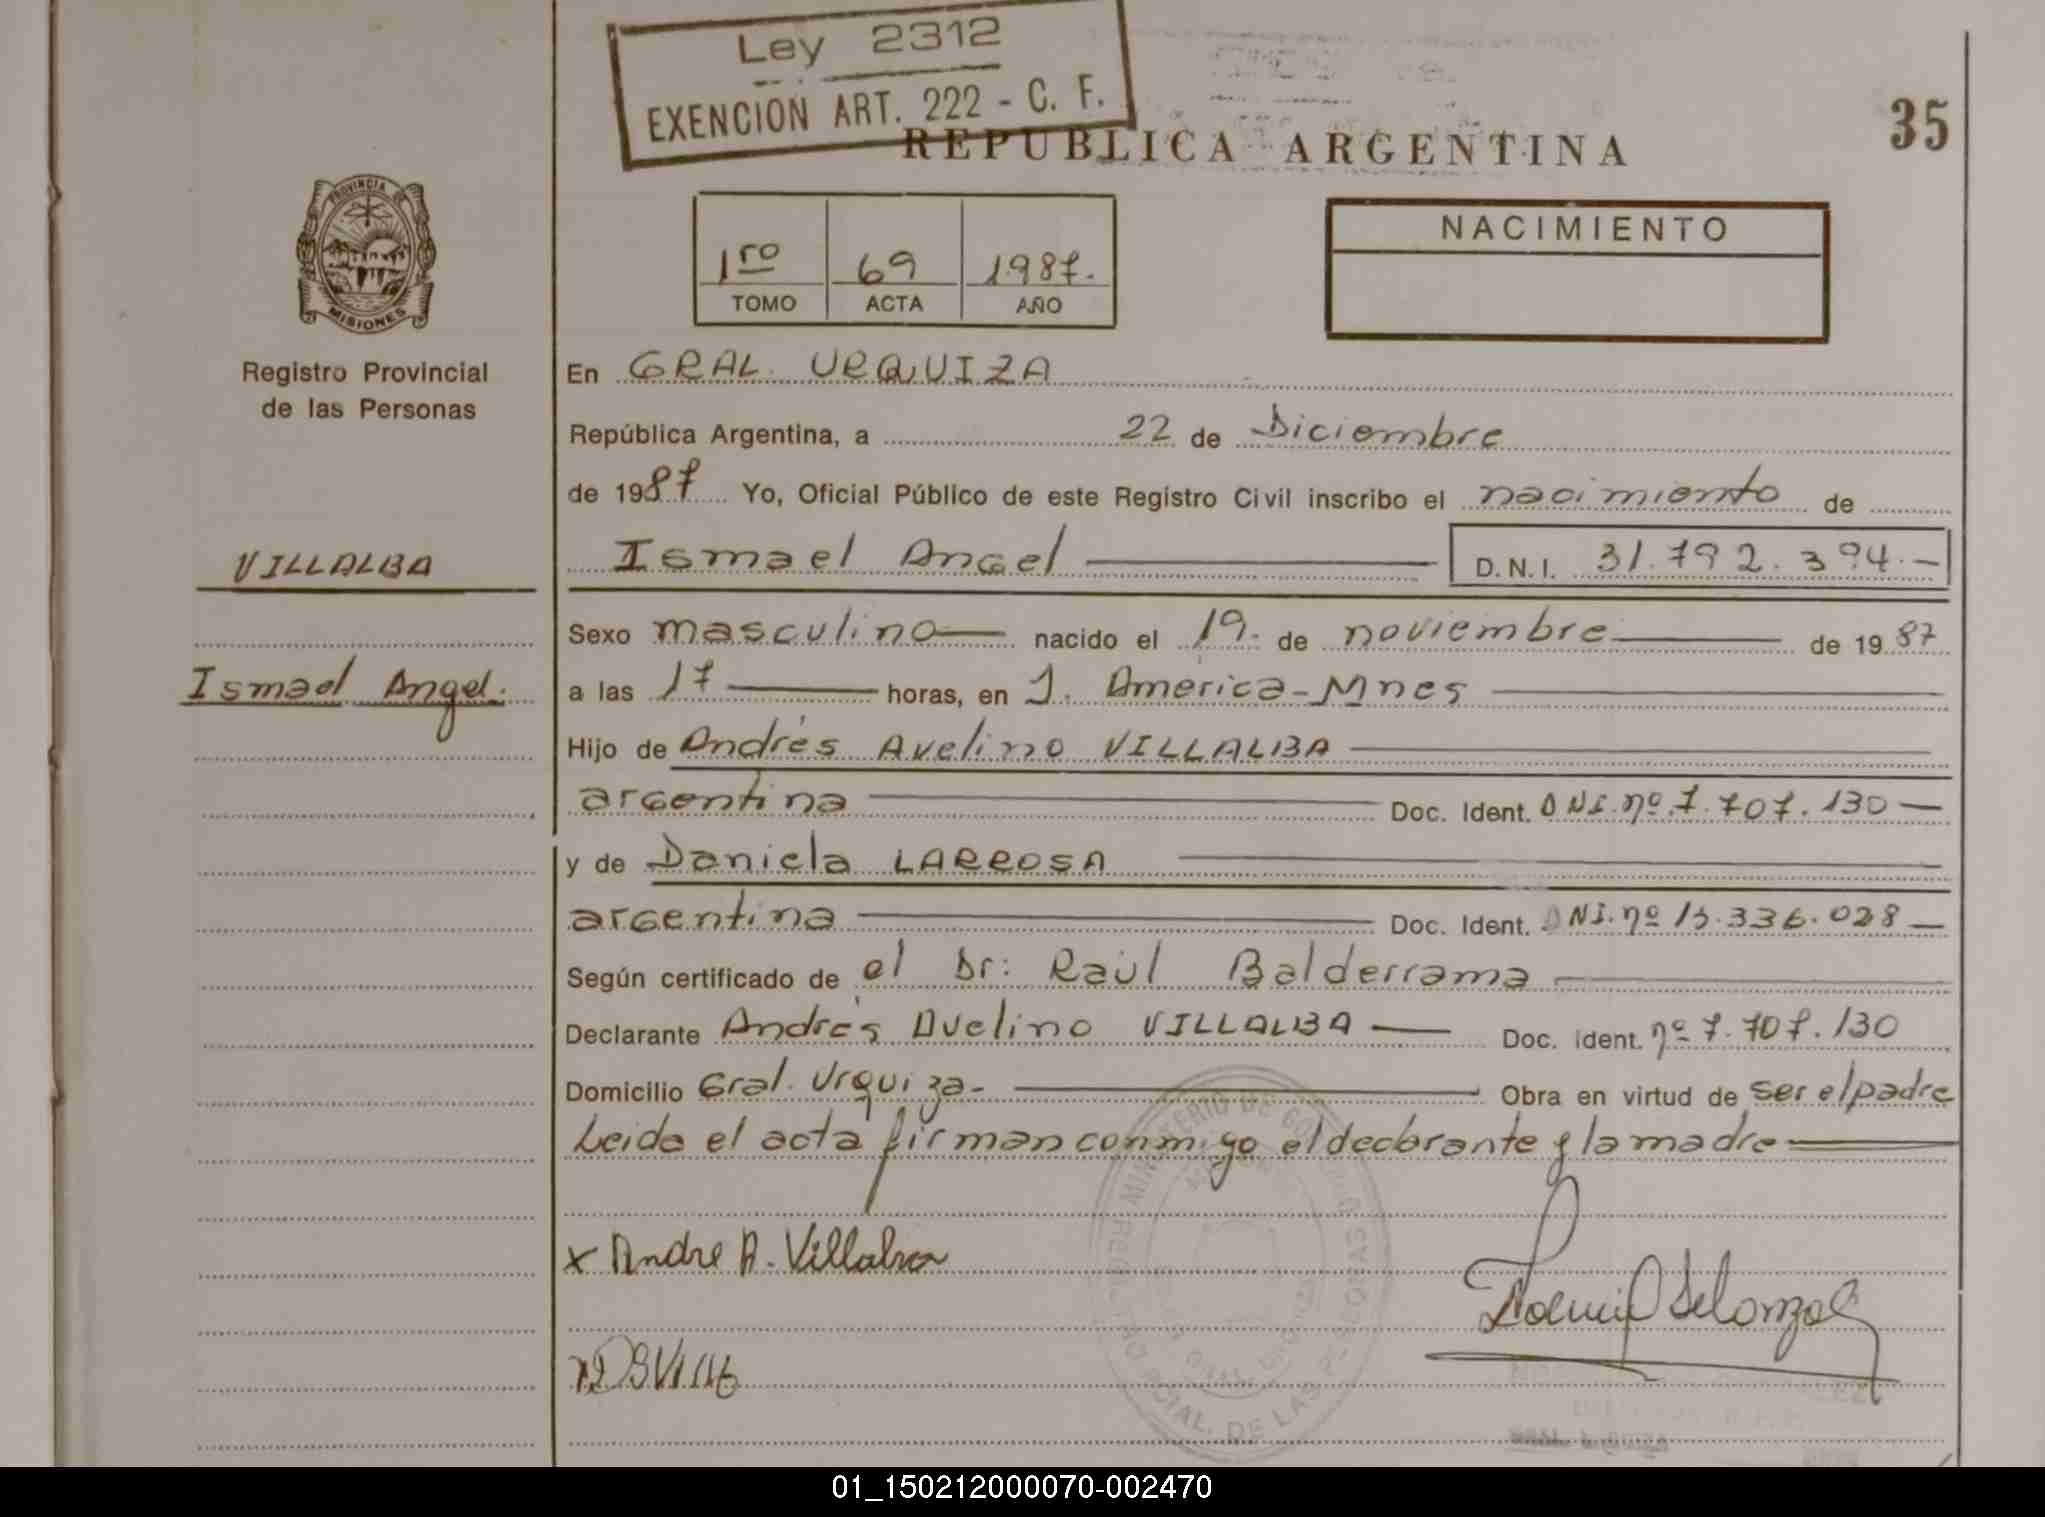 Ley 2312
EXENCION ART. 222 - C. F.
REPUBLICA ARGENTINA
35
PROVINCIA DE
MISIONES
Registro Provincial
de las Personas
1ro 69 1987.
TOMO ACTA AÑO
NACIMIENTO
En GRAL. URQUIZA
República Argentina, a 22 de Diciembre
de 1987 Yo, Oficial Público de este Registro Civil inscribo el nacimiento de
VILLALBA
Ismael Angel D.N.I. 31.792.394.-
Ismael Angel.
Sexo masculino nacido el 19. de noviembre de 1987
a las 17 horas, en J. America-Mnes
Hijo de Andrés Avelino VILLALBA
argentina Doc. Ident. DNI.nº.7.707.130
y de Daniela LARROSA
argentina Doc. Ident. DNI.nº 13.336.028
Según certificado de el Dr: Raúl Balderrama
Declarante Andrés Avelino VILLALBA Doc. Ident. nº 7.707.130
Domicilio Gral. Urquiza- Obra en virtud de ser el padre
Leida el acta firman conmigo el declarante y la madre
x Andre A. Villalva
01_150212000070-002470